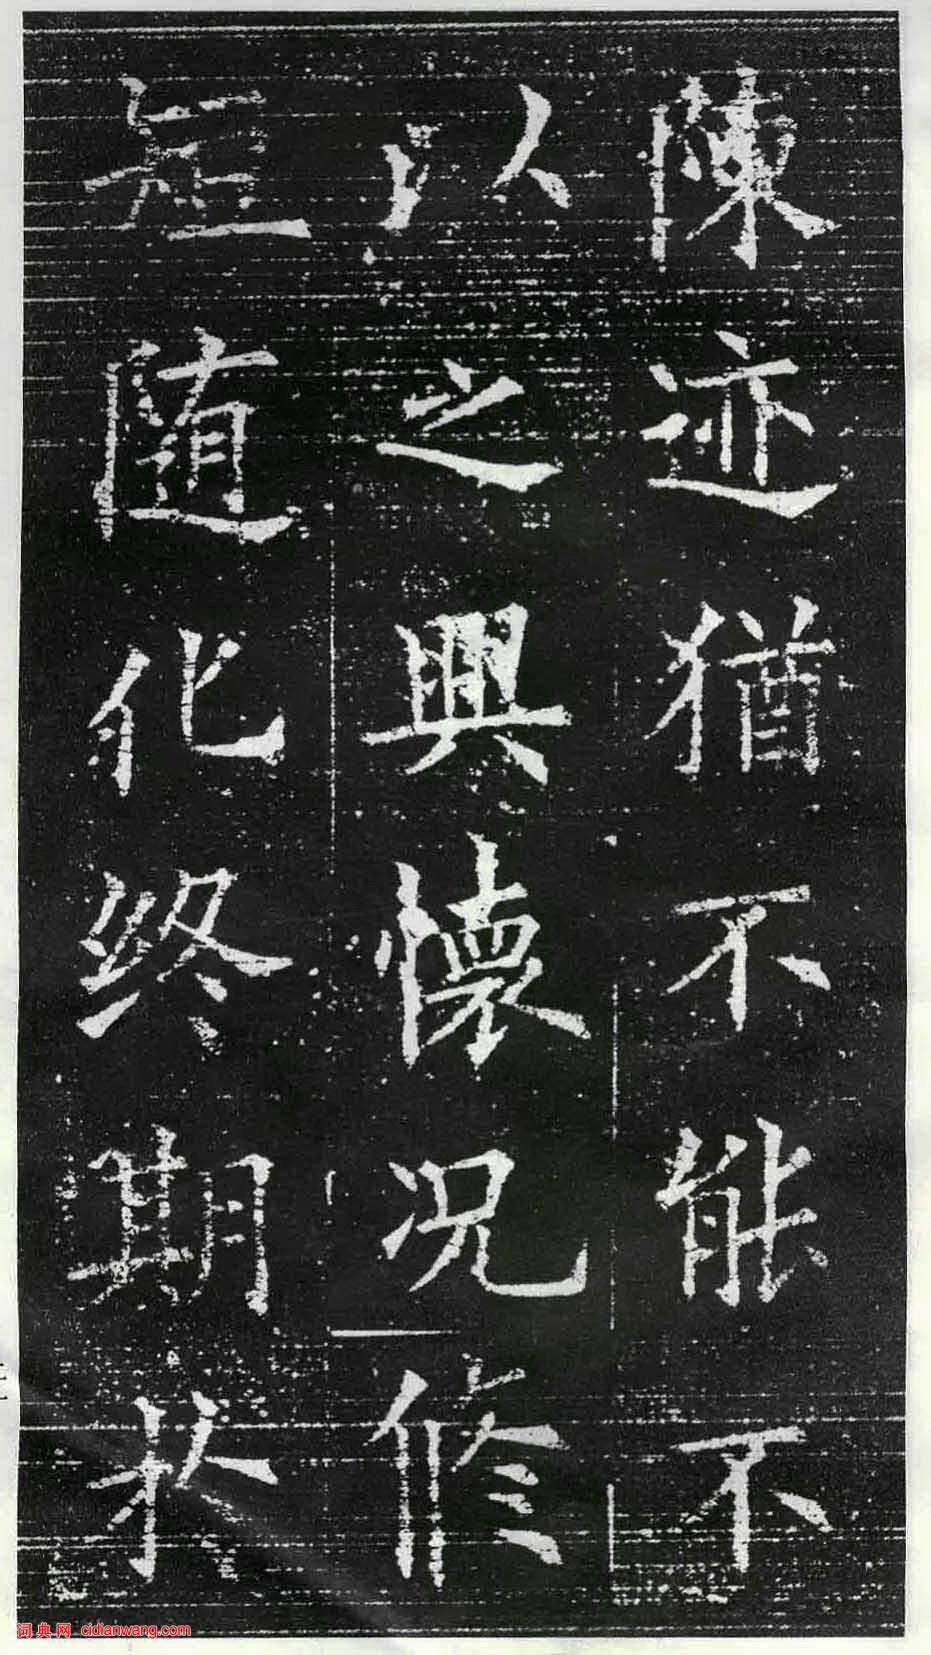 陳迹猶不能不
以之興懷況修
短随化終期於
词典网 cidianwang.com